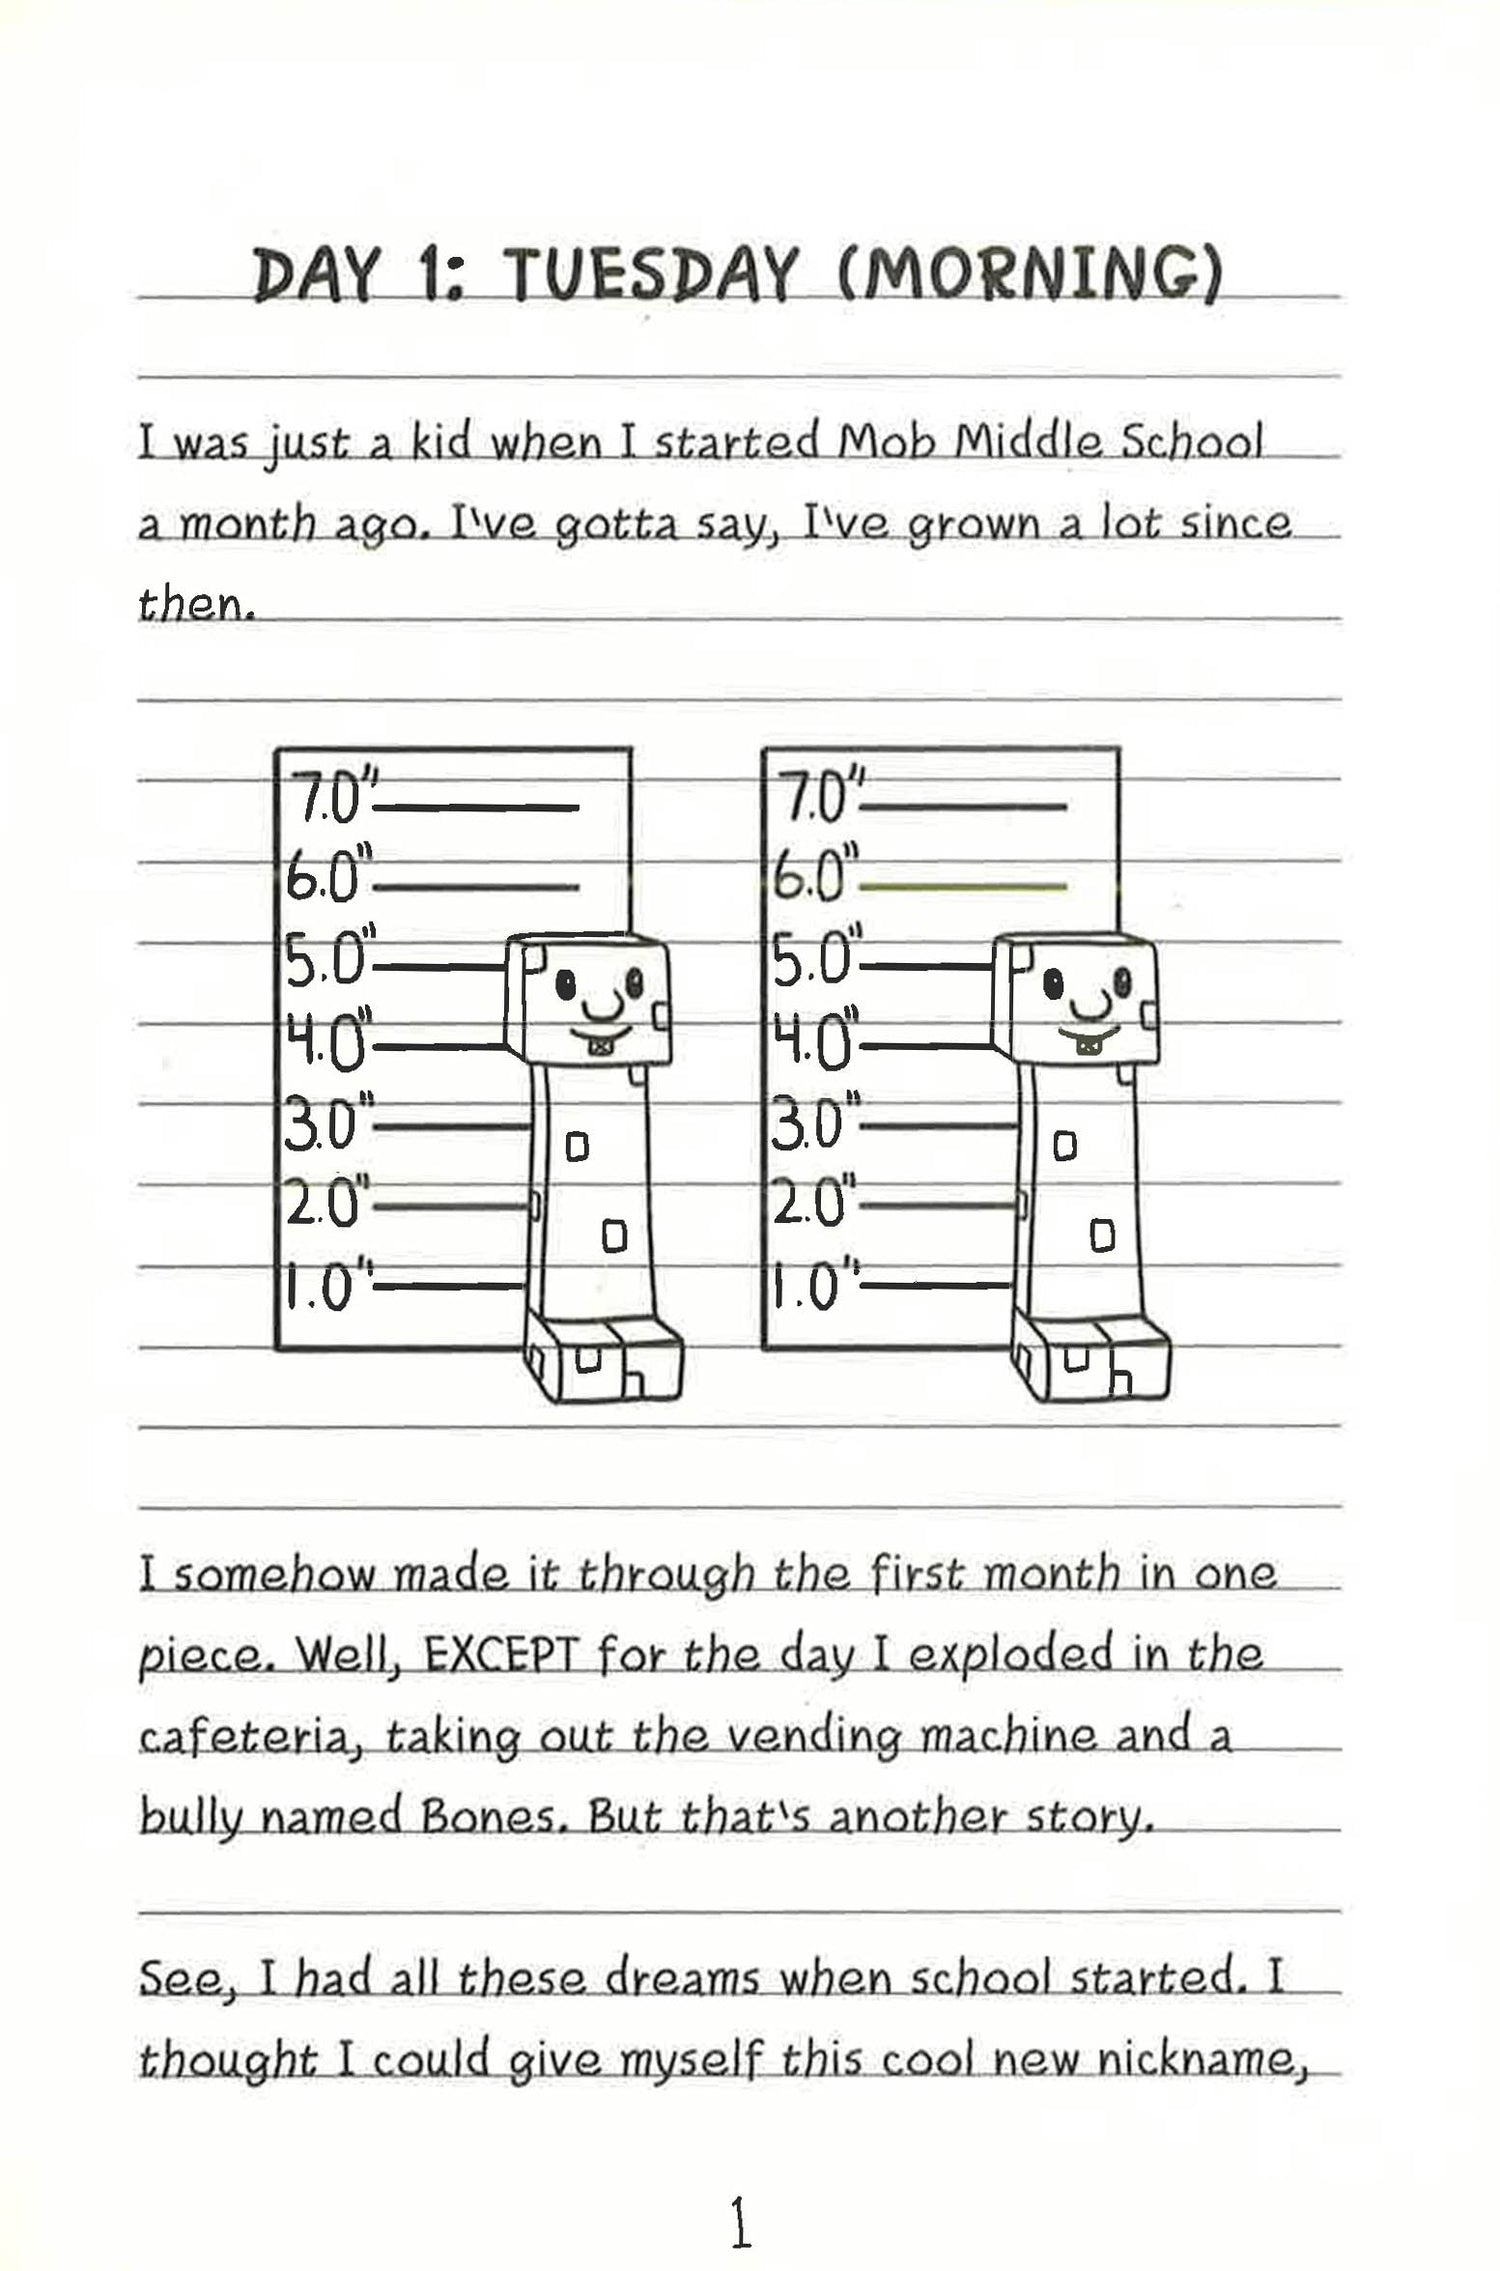 DAY 1: TUESDAY (MORNING)
I was just a kid when I started Mob Middle School
a month ago. I've gotta say, I've grown a lot since
then.
7.0"
6.0"
5.0"
4.0"
3.0"
2.0"
1.0"
7.0"
6.0"
5.0"
4.0"
3.0"
2.0"
1.0"
I somehow made it through the first month in one
piece. Well, EXCEPT for the day I exploded in the
cafeteria, taking out the vending machine and a
bully named Bones. But that's another story.
See, I had all these dreams when school started. I
thought I could give myself this cool new nickname,
1